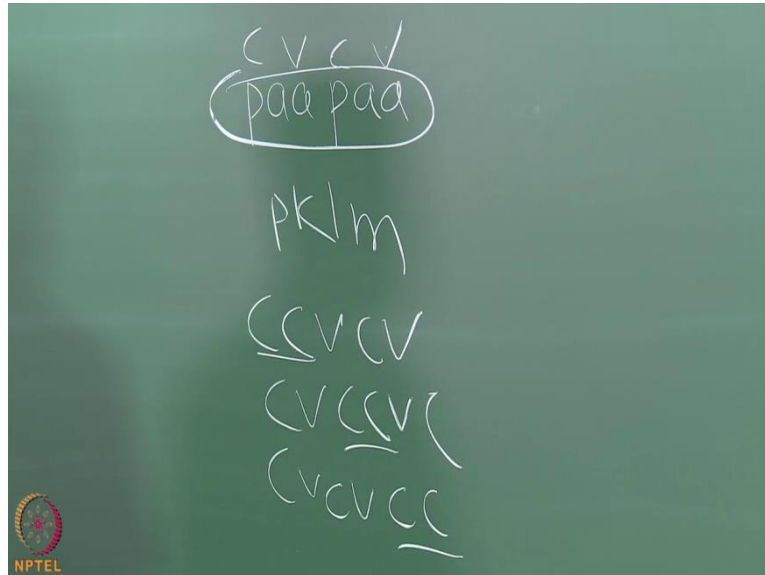 C V C V
paa paa
pklm
CCVCV
CVCCVC
CVCVCC
NPTEL